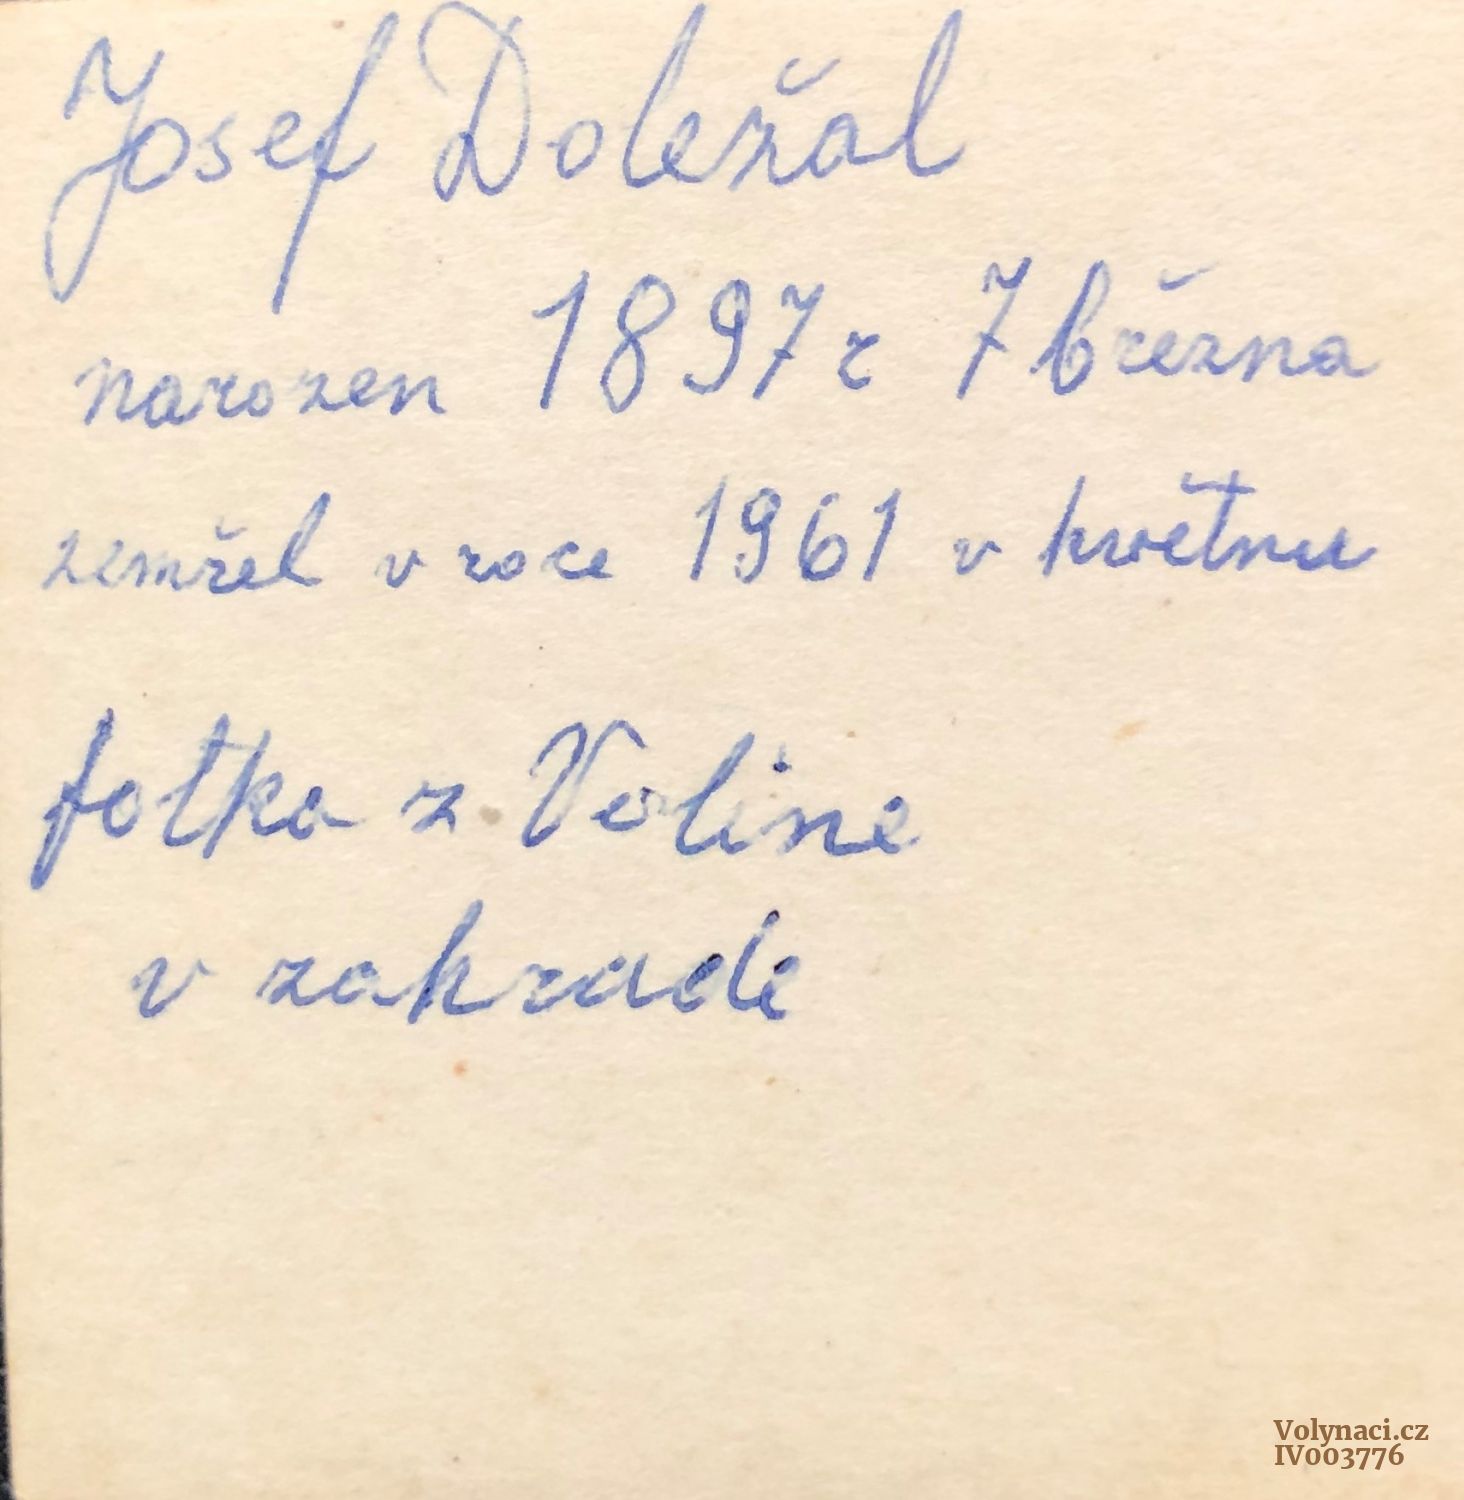 Josef Doležal
narozen 1897 r 7 března
zemřel v roce 1961 v květnu
fotka z Voline
v zahrade
Volynaci.cz
IV003776